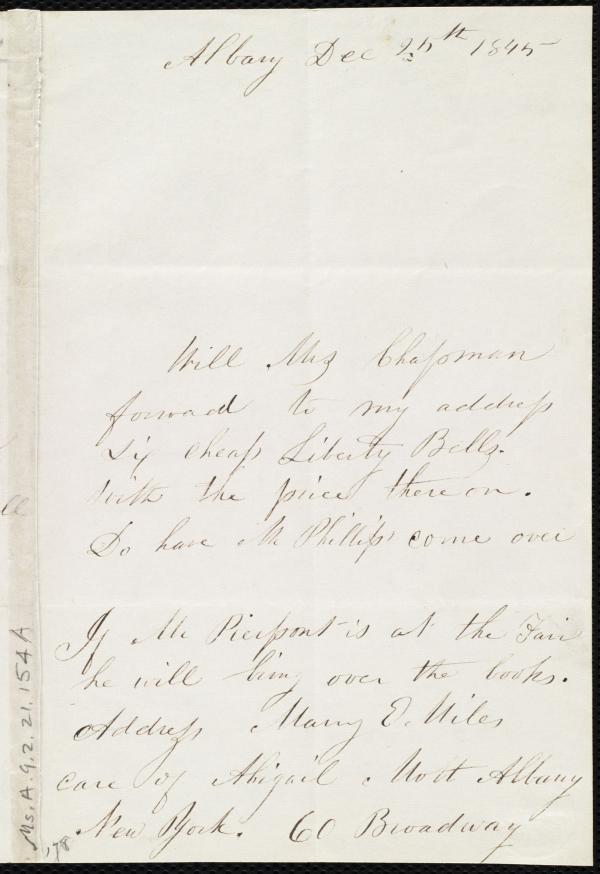 Albany Dec 25th 1845
Will Mrs Chapman
forward to my address
Six cheap Liberty Bells.
With the price thereon.
Do have Mr Phillips come over
If Mr Pierpont is at the Fair
he will bring over the books.
Address Mary E. Miles
care of Abigail Mott Albany
New York. 60 Broadway
Ms. A. 9. 2. 21. 154A